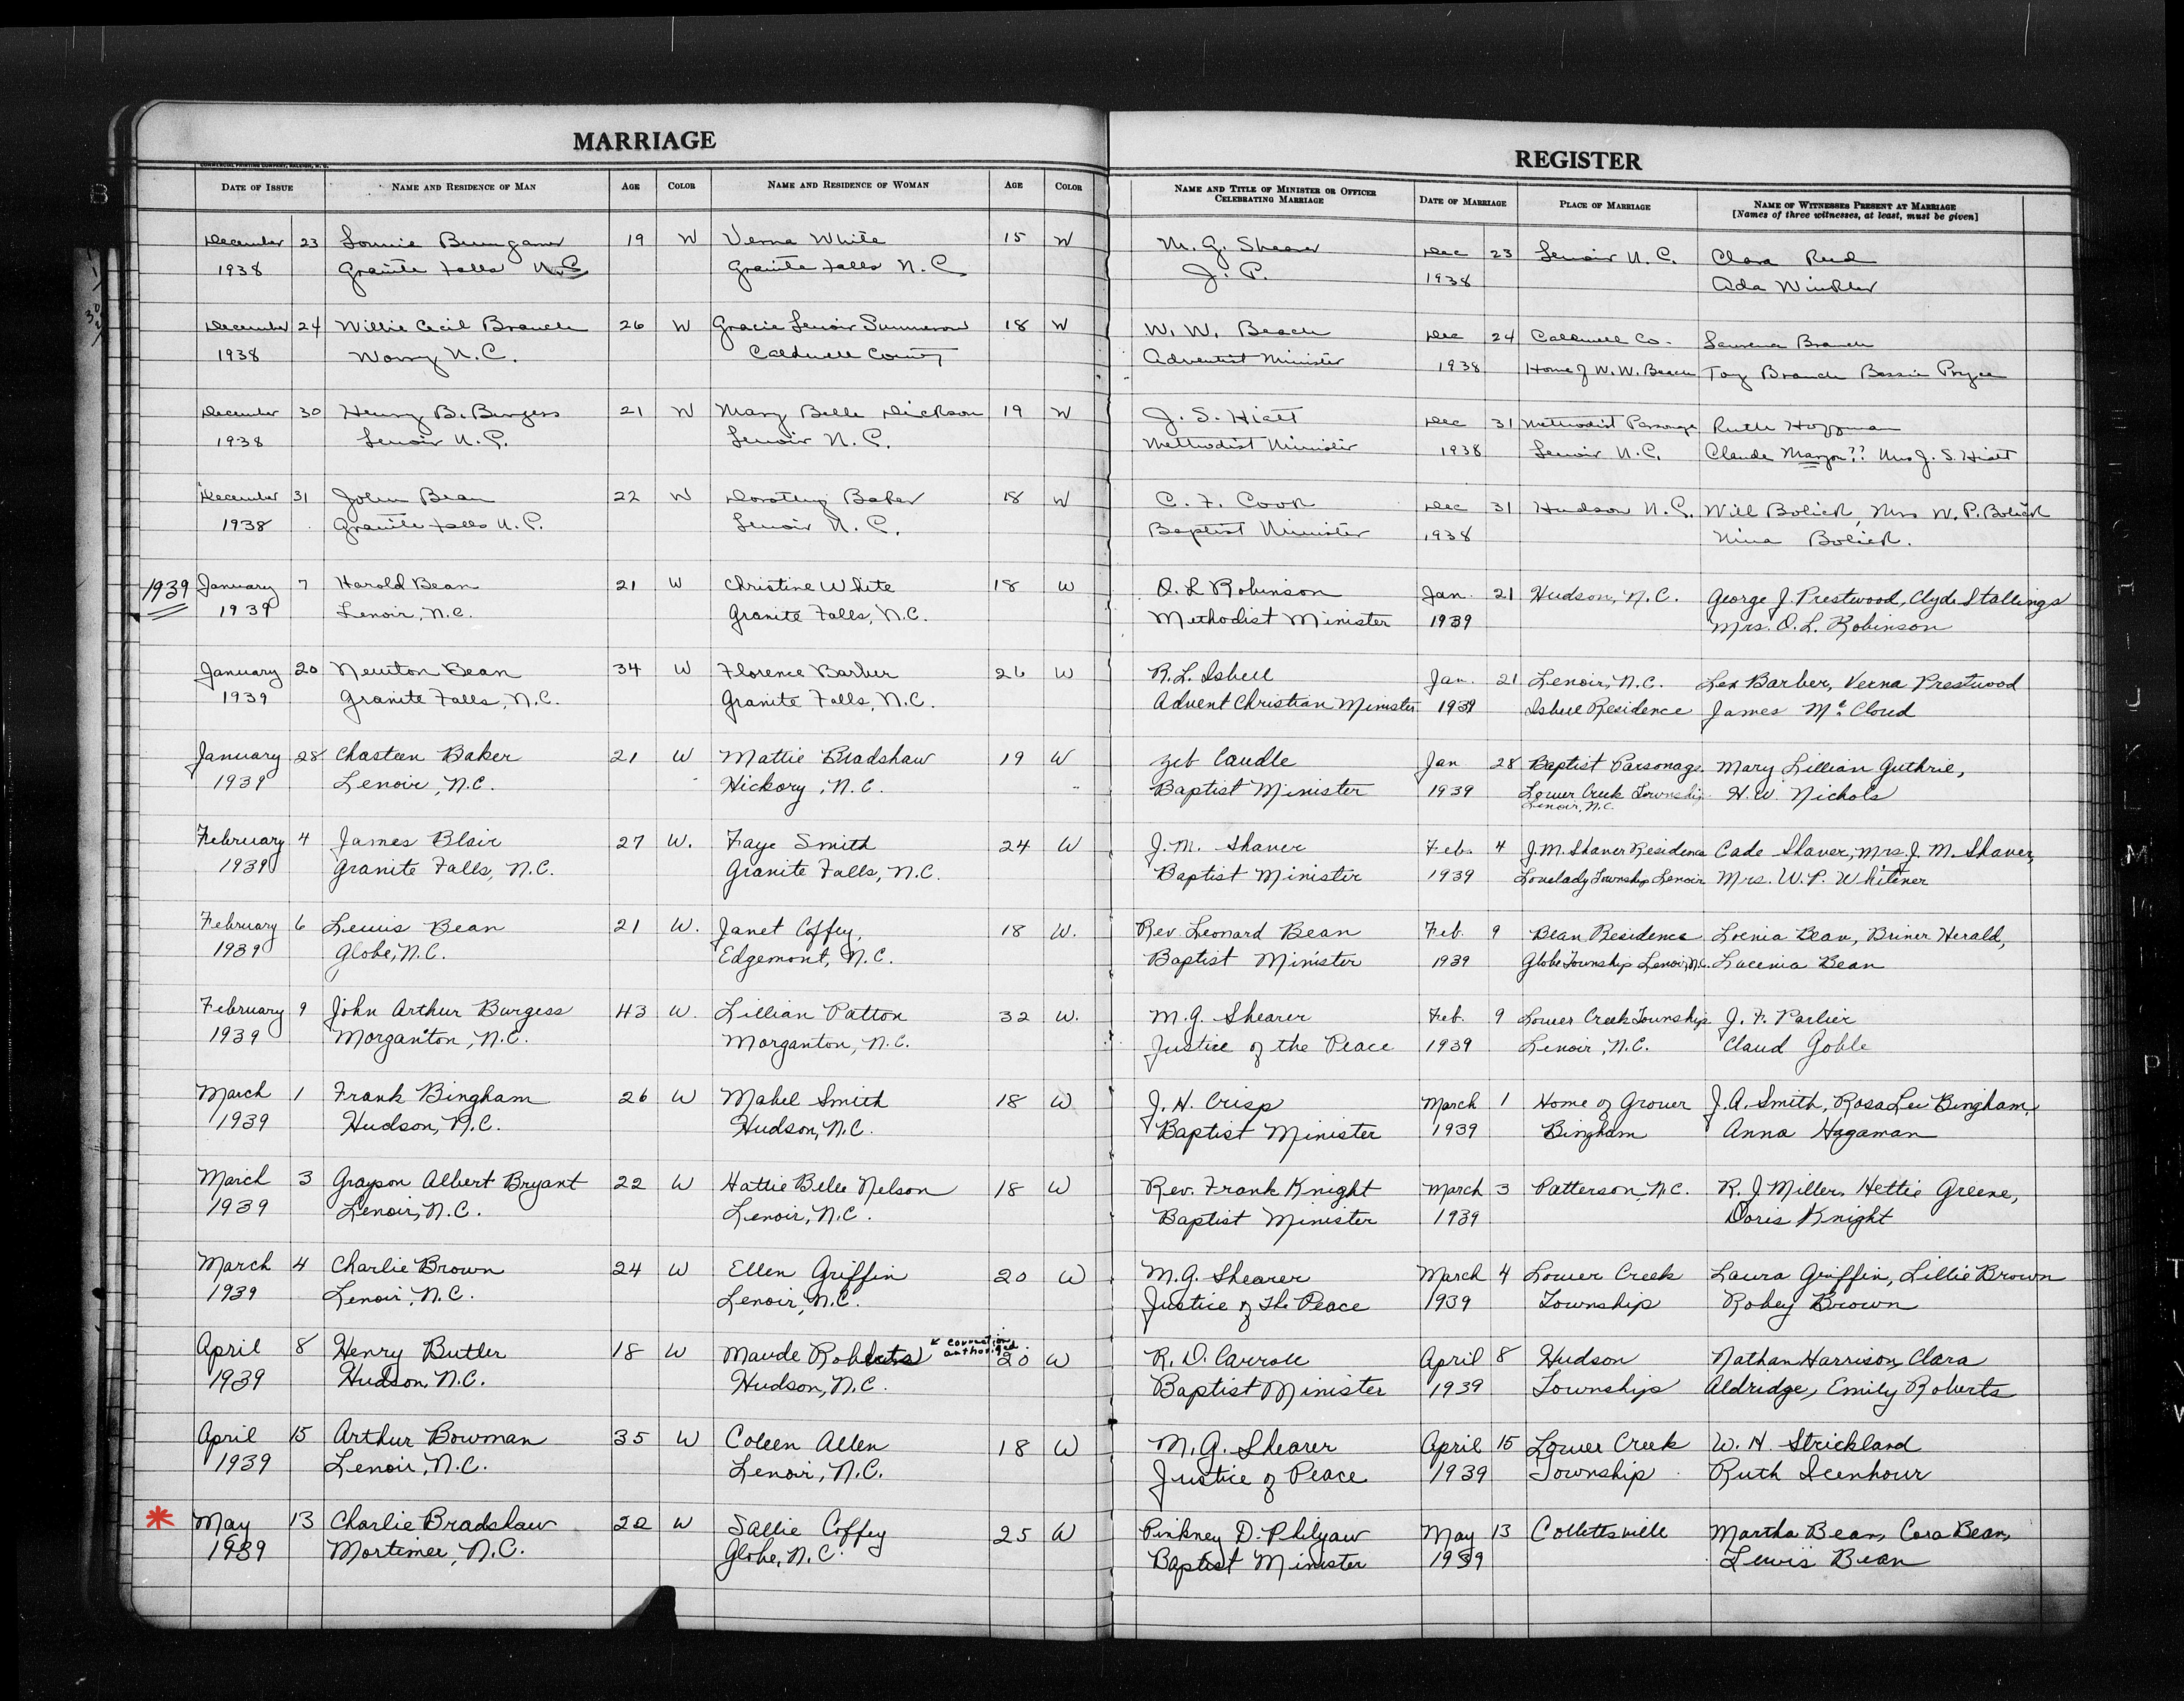 MARRIAGE
REGISTER
COMMERCIAL PRINTING COMPANY, RALEIGH, N. C.
DATE OF ISSUE NAME AND RESIDENCE OF MAN AGE COLOR NAME AND RESIDENCE OF WOMAN AGE COLOR NAME AND TITLE OF MINISTER OR OFFICER CELEBRATING MARRIAGE DATE OF MARRIAGE PLACE OF MARRIAGE NAME OF WITNESSES PRESENT AT MARRIAGE
[Names of three witnesses, at least, must be given]
B
December 23 Lonnie Bumgarner 19 W Verna White 15 W M. G. Shearer Dec 23 Lenoir N. C. Clara Reid
1938 Granite Falls N.C. Granite Falls N. C. J. P. 1938 Ada Winkler
December 24 Willie Cecil Branch 26 W Gracie Lenoir Summerow 18 W W. W. Beach Dec 24 Caldwell Co. Branch
1938 Worry N. C. Caldwell County Adventist Minister 1938 Home of W. W. Beach Toy Branch Bessie
December 30 Henry B. Burgess 21 W Mary Belle Dickson 19 W J. S. Hiatt Dec 31 Methodist Parsonage Ruth Hoffman
1938 Lenoir N. C. Lenoir N. C. Methodist Minister 1938 Lenoir N. C. Claude ?? Mrs J. S. Hiatt
December 31 John Bean 22 W Dorothy Baker 18 W C. F. Cook Dec 31 Hudson N. C. Will Bolick, Mrs W. P. Bolick
1938 Granite Falls N. C. Lenoir N. C. Baptist Minister 1938 Nina Bolick.
1939 January 7 Harold Bean 21 W Christine White 18 W O. L Robinson Jan. 21 Hudson, N. C. George J. Prestwood, Clyde Stallings
1939 Lenoir, N.C. Granite Falls, N.C. Methodist Minister 1939 Mrs. O. L. Robinson
January 20 Newton Bean 34 W Florence Barber 26 W R. L. Isbell Jan. 21 Lenoir, N.C. Lex Barber, Verna Prestwood
1939 Granite Falls, N.C. Granite Falls, N.C. Advent Christian Minister 1939 Isbell Residence James McCloud
January 28 Chasteen Baker 21 W Mattie Bradshaw 19 W Zeb Caudle Jan 28 Baptist Parsonage Mary Lillian Guthrie,
1939 Lenoir, N.C. Hickory, N.C. Baptist Minister 1939 Lower Creek Township H. W. Nichols
Lenoir, N.C.
February 4 James Blair 27 W. Faye Smith 24 W J. M. Shaver Feb. 4 J.M. Shaver Residence Cade Shaver, Mrs. J. M. Shaver,
1939 Granite Falls, N.C. Granite Falls, N.C. Baptist Minister 1939 Lovelady Township Lenoir Mrs. W. P. Whitener
February 6 Lewis Bean 21 W. Janet Coffey, 18 W. Rev. Leonard Bean Feb. 9 Bean Residence Bean, Briner Herald,
1939 Globe, N.C. Edgemont, N.C. Baptist Minister 1939 Globe Township Lenoir, N.C. Lucenia Bean
February 9 John Arthur Burgess 43 W. Lillian Patton 32 W. M. G. Shearer Feb. 9 Lower Creek Township J. F. Parlier
1939 Morganton, N.C. Morganton, N.C. Justice of the Peace 1939 Lenoir, N.C. Claud Goble
March 1 Frank Bingham 26 W Mabel Smith 18 W J. H. Crisp March 1 Home of Grover J. A. Smith, Rosa Lee Bingham,
1939 Hudson, N.C. Hudson, N.C. Baptist Minister 1939 Bingham Anna Hagaman
March 3 Grayson Albert Bryant 22 W Hattie Belle Nelson 18 W Rev. Frank Knight March 3 Patterson, N.C. R. J. Miller, Hettie Greene,
1939 Lenoir, N.C. Lenoir, N.C. Baptist Minister 1939 Doris Knight
March 4 Charlie Brown 24 W Ellen Griffin 20 W M. G. Shearer March 4 Lower Creek Laura Griffin, Lillie Brown
1939 Lenoir, N.C. Lenoir, N.C. Justice of the Peace 1939 Township Robey Brown
April 8 Henry Butler 18 W Maude Roberts ↙ correction authorized. 20 W R. D. Carroll April 8 Hudson Nathan Harrison, Clara
1939 Hudson, N.C. Hudson, N.C. Baptist Minister 1939 Township Aldridge, Emily Roberts
April 15 Arthur Bowman 35 W Coleen Allen 18 W M. G. Shearer April 15 Lower Creek W. H. Strickland
1939 Lenoir, N.C. Lenoir, N.C. Justice of Peace 1939 Township Ruth Icenhour
* May 13 Charlie Bradshaw 22 W Sallie Coffey 25 W Pinkney D. Philyaw May 13 Collettsville Martha Bean, Cora Bean,
1939 Mortimer, N.C. Globe, N.C. Baptist Minister 1939 Lewis Bean